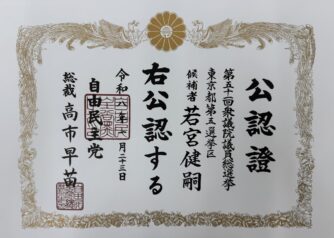 公認證
衆議院議員総選挙
東京都第五選挙区
候補者 若宮健嗣
右公認する
令和
月二十三日
自由民主党
総裁 高市早苗